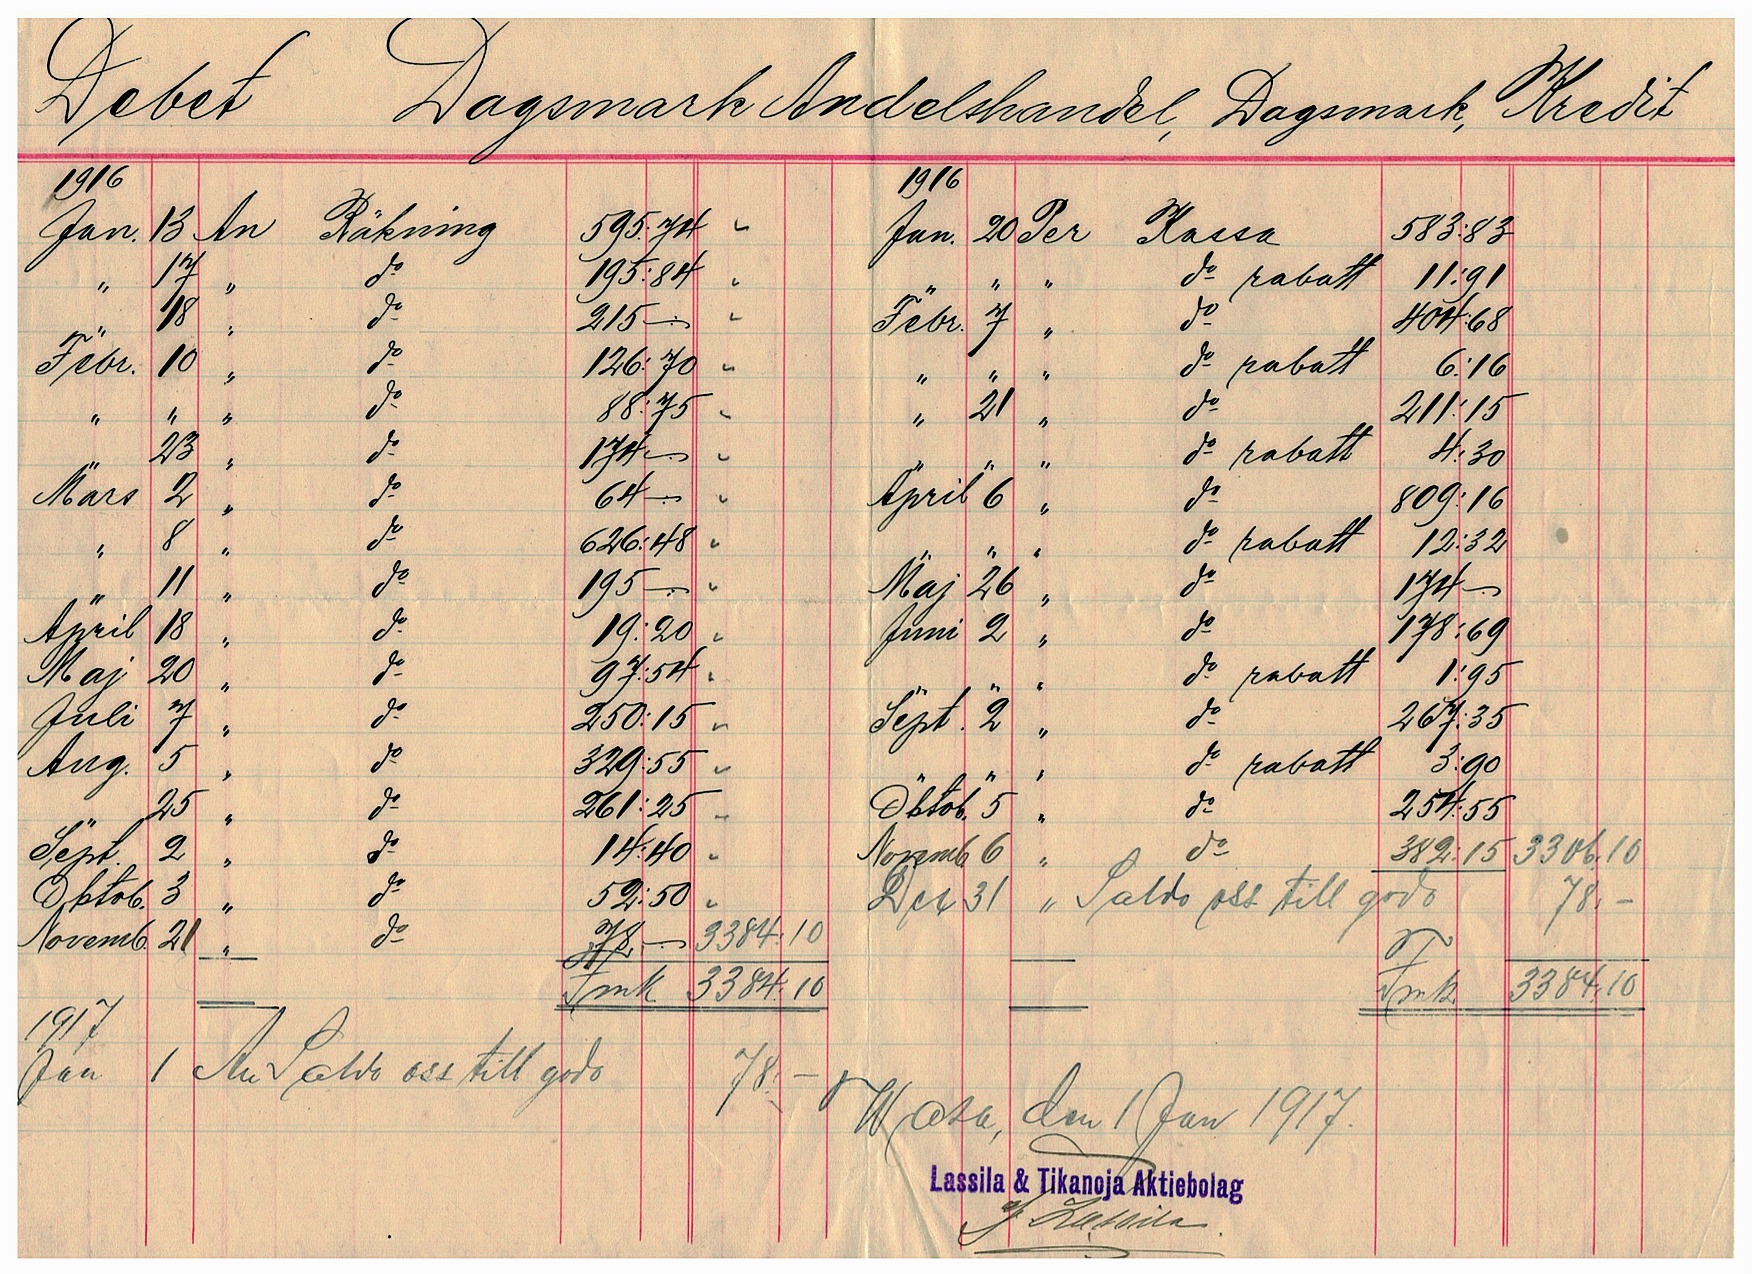 Debet Dagsmark Andelshandel, Dagsmark, Kredit
1916
Jan. 13 An Räkning 595:74
" 17 " do 195:84
" 18 " do 215 —
Febr. 10 " do 126:70
" " " do 88:75
" 23 " do 174 —
Mars 2 " do 64 —
" 8 " do 626:48
" 11 " do 195 —
April 18 " do 19:20
Maj 20 " do 97:54
Juli 7 " do 250:15
Aug. 5 " do 329:55
" 25 " do 261:25
Sept. 2 " do 14:40
Oktob. 3 " do 52:50
Novemb. 21 " do 78 — 3384:10
Fmk 3384:10
1917
Jan 1 An Saldo oss till godo 78. —
1916
Jan. 20 Per Kassa 583:83
" " " do rabatt 11:91
Febr. 7 " do 404:68
" " " do rabatt 6:16
" 21 " do 211:15
" " " do rabatt 4:30
April 6 " do 809:16
" " " do rabatt 12:32
Maj 26 " do 174 —
Juni 2 " do 178:69
" " " do rabatt 1:95
Sept. 2 " do 267:35
" " " do rabatt 3:90
Oktob. 5 " do 254:55
Novemb 6 " do 382:15 3306.10
Dec 31 " Saldo oss till godo 78. —
Fmk 3384.10
Wasa, den 1 Jan 1917.
Lassila & Tikanoja Aktiebolag
J Lassila